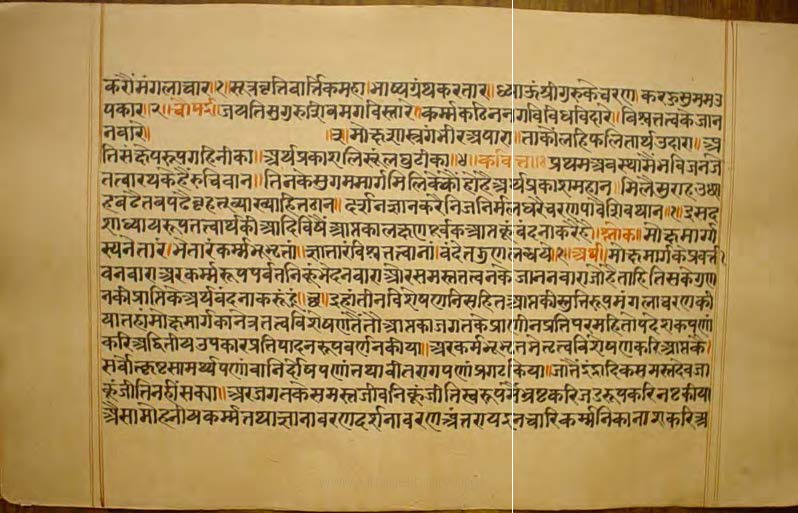 करौं मंगलाचार॥१॥ सूत्रवृत्तिवार्त्तिकमहा।भाष्यग्रंथकरतार॥ध्याऊं श्रीगुरुके चरण।करऊ सुमम उ
पकार॥२॥चोपई॥जयति सुगुरु शिवमगविस्तारे॥कर्म्मकठिननगविविधविदारे॥विश्वतत्वके जान
नवारे॥ ॥३॥मोक्षशास्त्रगंभीरअपारा॥ताकौ लहि फलितार्थउदारा॥अ
तिसंक्षेपरूप टीका॥अर्थप्रकाशलिखूं लघुटीका॥४॥कवित्त॥प्रथमअवस्था
तत्वारथ कहै रुचिवान॥तिनकै सुगममार्ग मिलिवेकौ होहै अर्थप्रकाश महान॥
दर्शनज्ञान करै निजनिर्मल धरै चरण पावै शिवथान॥१॥इस द
शाध्यायरूपतत्वार्थकी आदिविषैं आप्तका लक्षणपूर्वक आप्तकूं वंदना करै है॥श्लोक॥मोक्षमार्ग
स्य नेतारं भेत्तारं कर्म्मभूभृतां॥ज्ञातारं विश्वतत्वानां वंदे तद्गुणलब्धये॥१॥अर्थ॥मोक्षमार्गके प्रवर्त्ता
वनवारा अर कर्म्मरूपपर्वतनिकूं भेदनवारा और समस्ततत्वनके जाननवारा जो है ताहि तिसके गुण
नकी प्राप्तिके अर्थ वंदना करूं हूं॥ इहां तीन विशेषणनिसहित आप्तकी स्तुतिरूप मंगलाचरण की
या तहां मोक्षमार्गका नेतृत्व विशेषणतैं तौ आप्तका जगतके प्राणीनप्रति परमहितोपदेशकपणां
करि अद्वितीय उपकार प्रतिपादनरूप वर्णन कीया॥अर कर्मभूभृतनभेत्तृत्व विशेषणकरि आप्तकै
सर्वोत्कृष्टसामर्थ्यपणां वा निर्दोषपणां तथा वीतरागपणां प्रगट किया॥जातैं इंद्रादिक समस्त देव जा
कूं जीति नहीं सक्या॥अर जगतके समस्त जीवनिकूं जीति स्वरूपसैं भ्रष्टकरि जडरूपकरि नष्ट कीया
ऐसा मोहनीयकर्म्म तथा ज्ञानावरण दर्शनावरण अंतराय इन च्यारि कर्म्मनिका नाशकरि अ